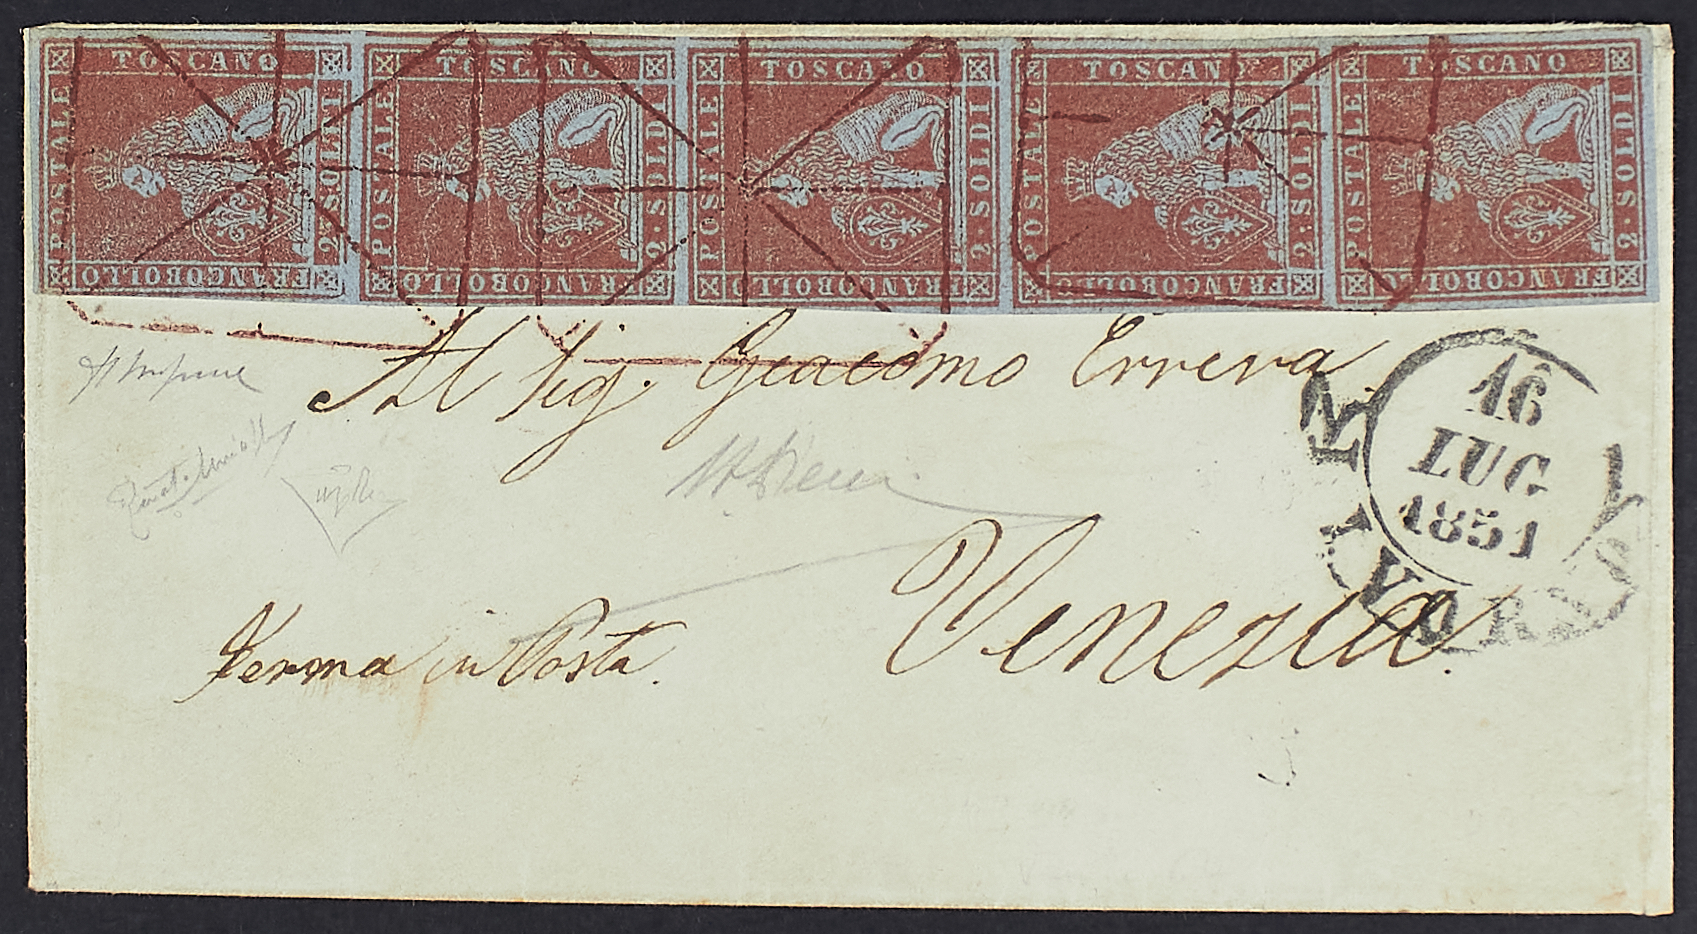 TOSCANO TOSCANO TOSCANO TOSCANO TOSCANO
POSTALE 2 SOLDI FRANCOBOLLO
POSTALE 2·SOLDI FRANCOBOLLO
POSTALE 2·SOLDI FRANCOBOLLO
POSTALE 2·SOLDI FRANCOBOLLO
POSTALE 2·SOLDI FRANCOBOLLO
Al Sig. Giacomo Errera
Venezia.
Ferma in Posta.
16
LUG
1851
LIVORNO
ADiena